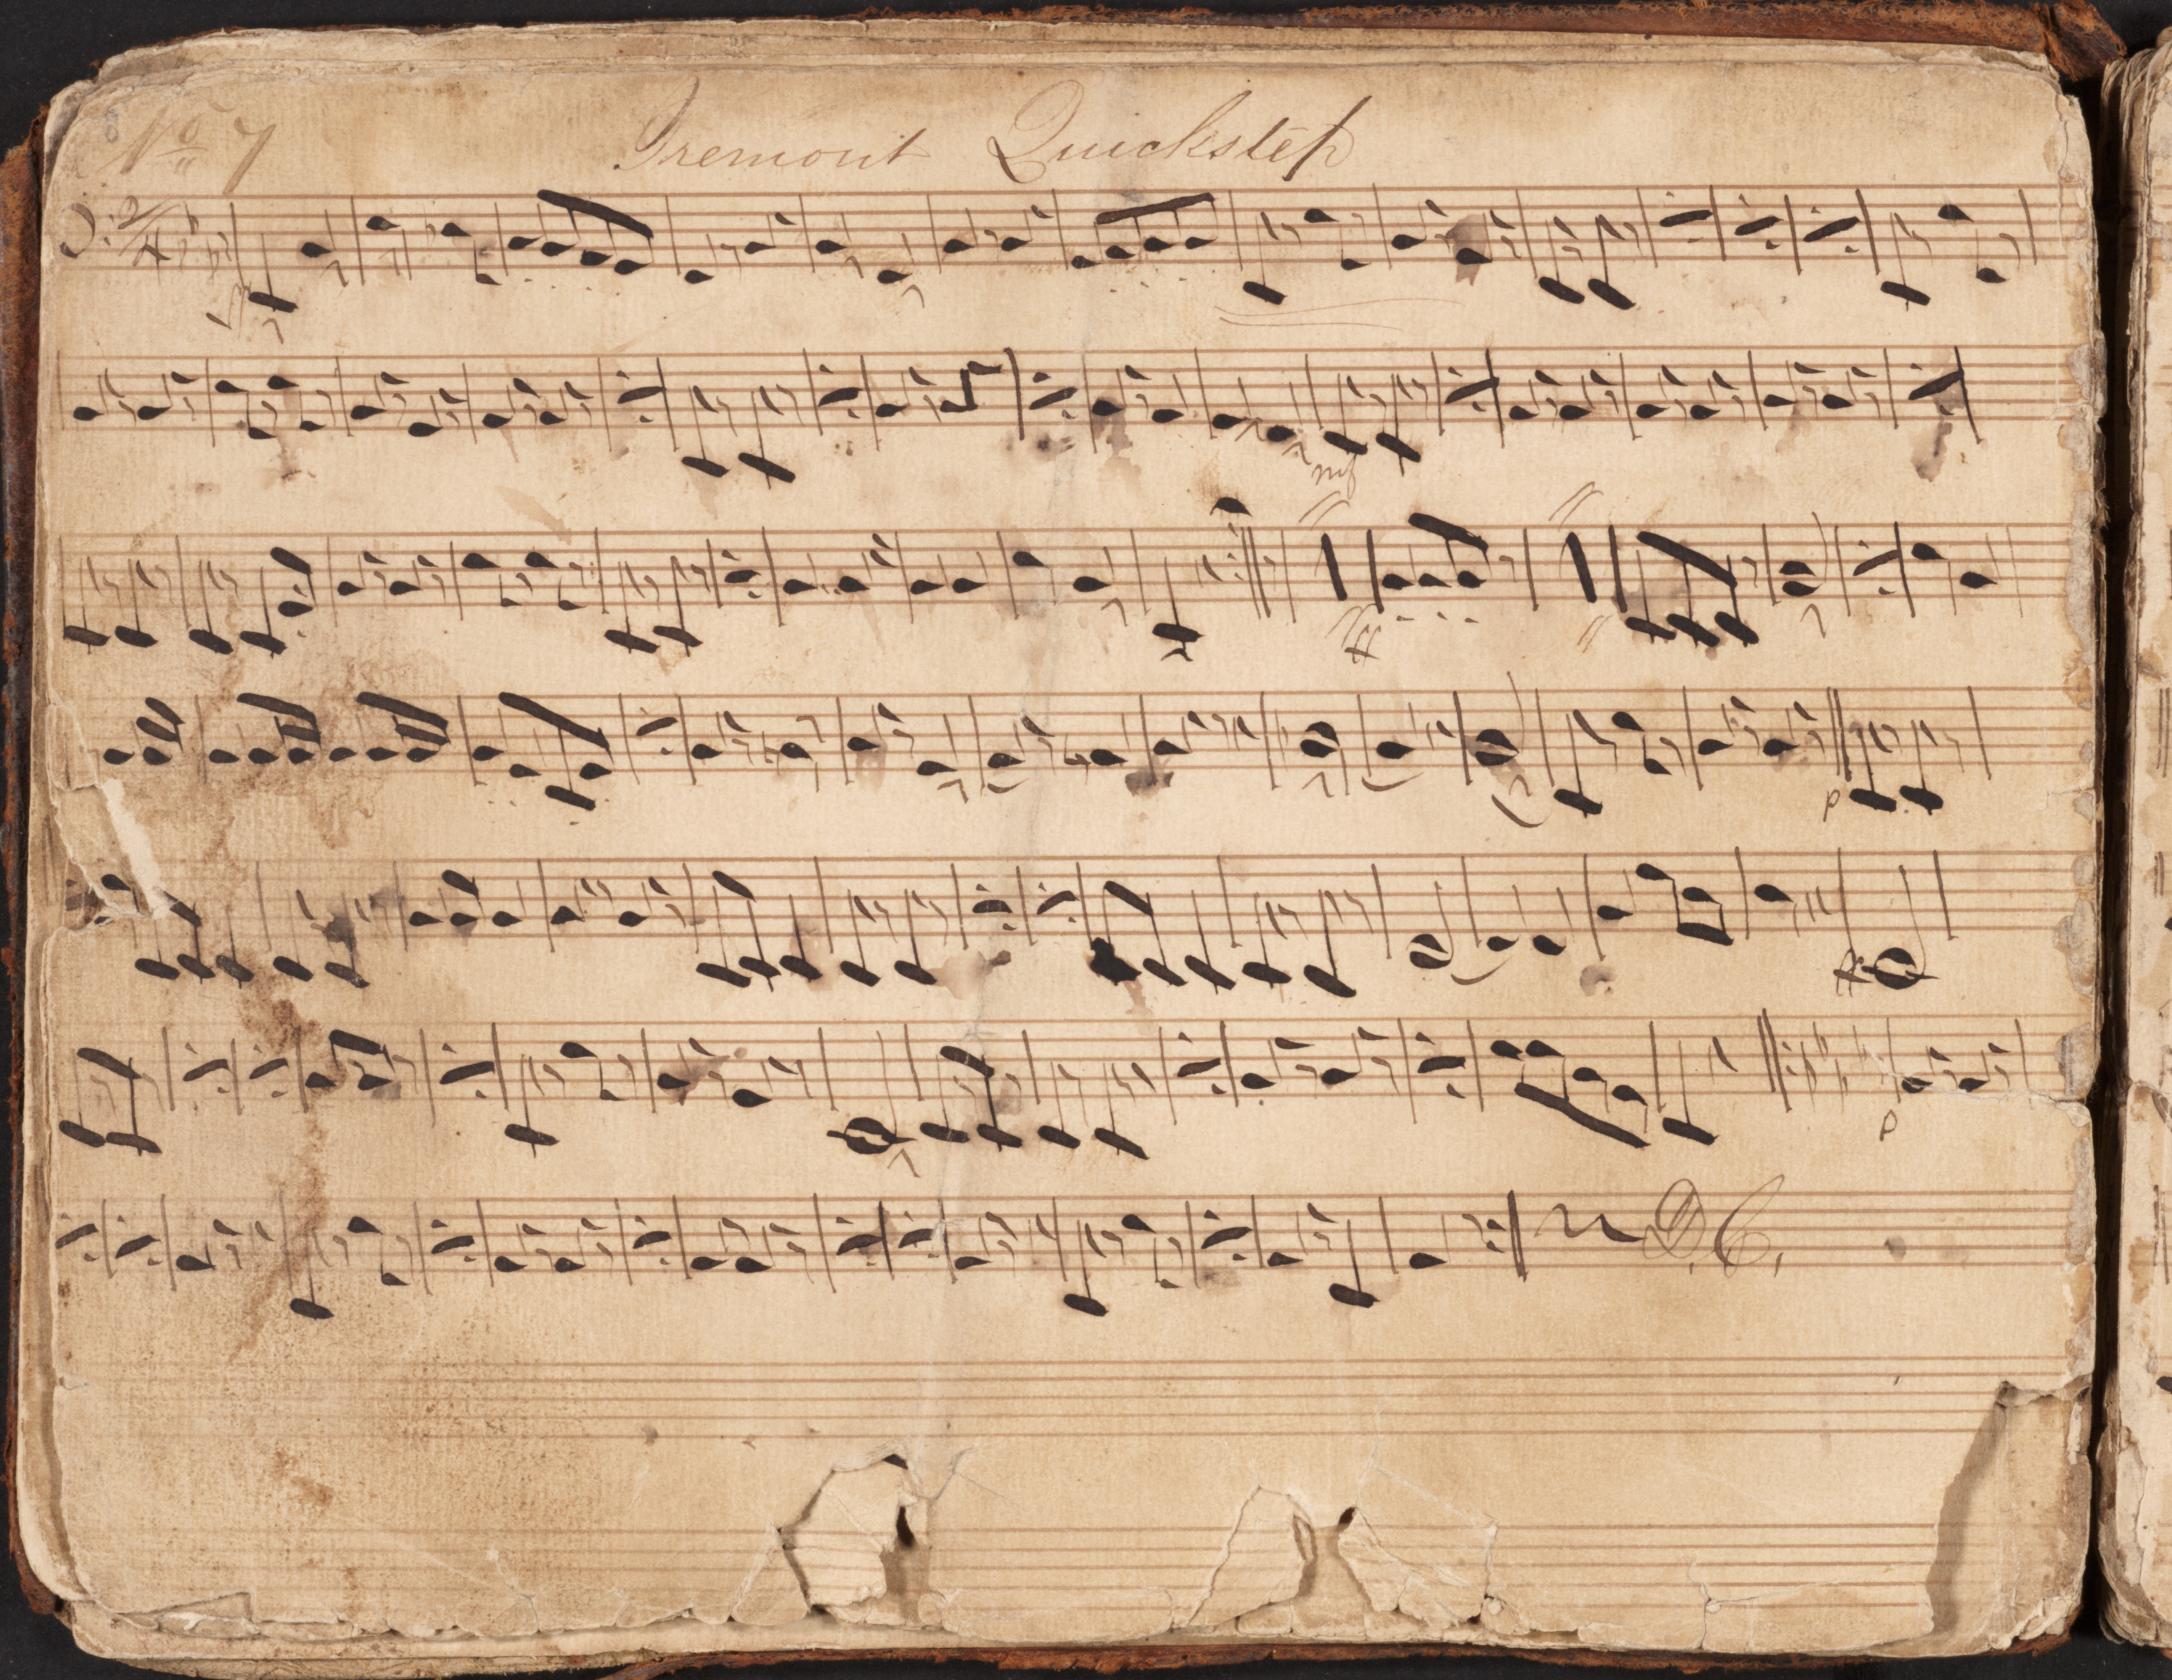 No 7 Tremont Quickstep
ff
mf
ff
p
p
D.C.